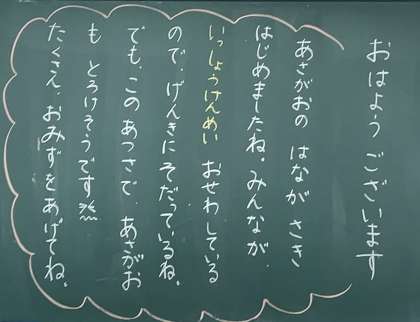 おはよう ございます
あさがおの はなが さき
はじめましたね。みんなが
いっしょうけんめい おせわしている
ので、げんきにそだっているね。
でも、このあつさで あさがお
も とろけそうです
たくさん、おみずをあげてね。